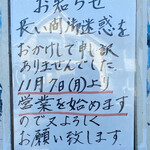 お知らせ
長い間御迷惑を
おかけして申し訳
ありませんでした
11月7日(月)より
営業を始めます
ので又よろしく
お願い致します。